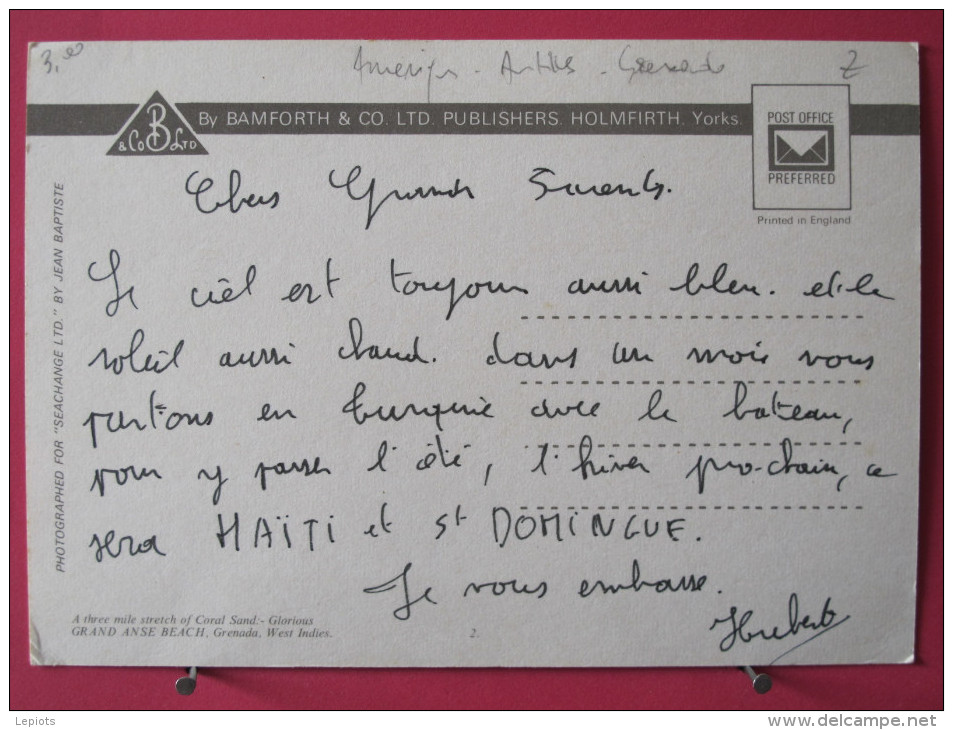 3,00
Amérique - Antilles - Grenade
Z
B & Co LTD
By BAMFORTH & CO. LTD. PUBLISHERS. HOLMFIRTH. Yorks.
POST OFFICE
PREFERRED
Printed in England
PHOTOGRAPHED FOR "SEACHANGE LTD." BY JEAN BAPTISTE
Chers Grands Parents.
Le ciel est toujours aussi bleu. et le
soleil aussi chaud. dans un mois nous
partons en turquie avec le bateau,
pour y passer l'été, l'hiver prochain, ce
sera HAÏTI et St DOMINGUE.
Je vous embrasse.
Hubert
A three mile stretch of Coral Sand:- Glorious
GRAND ANSE BEACH, Grenada, West Indies.
2.
Lepiots
www.delcampe.net